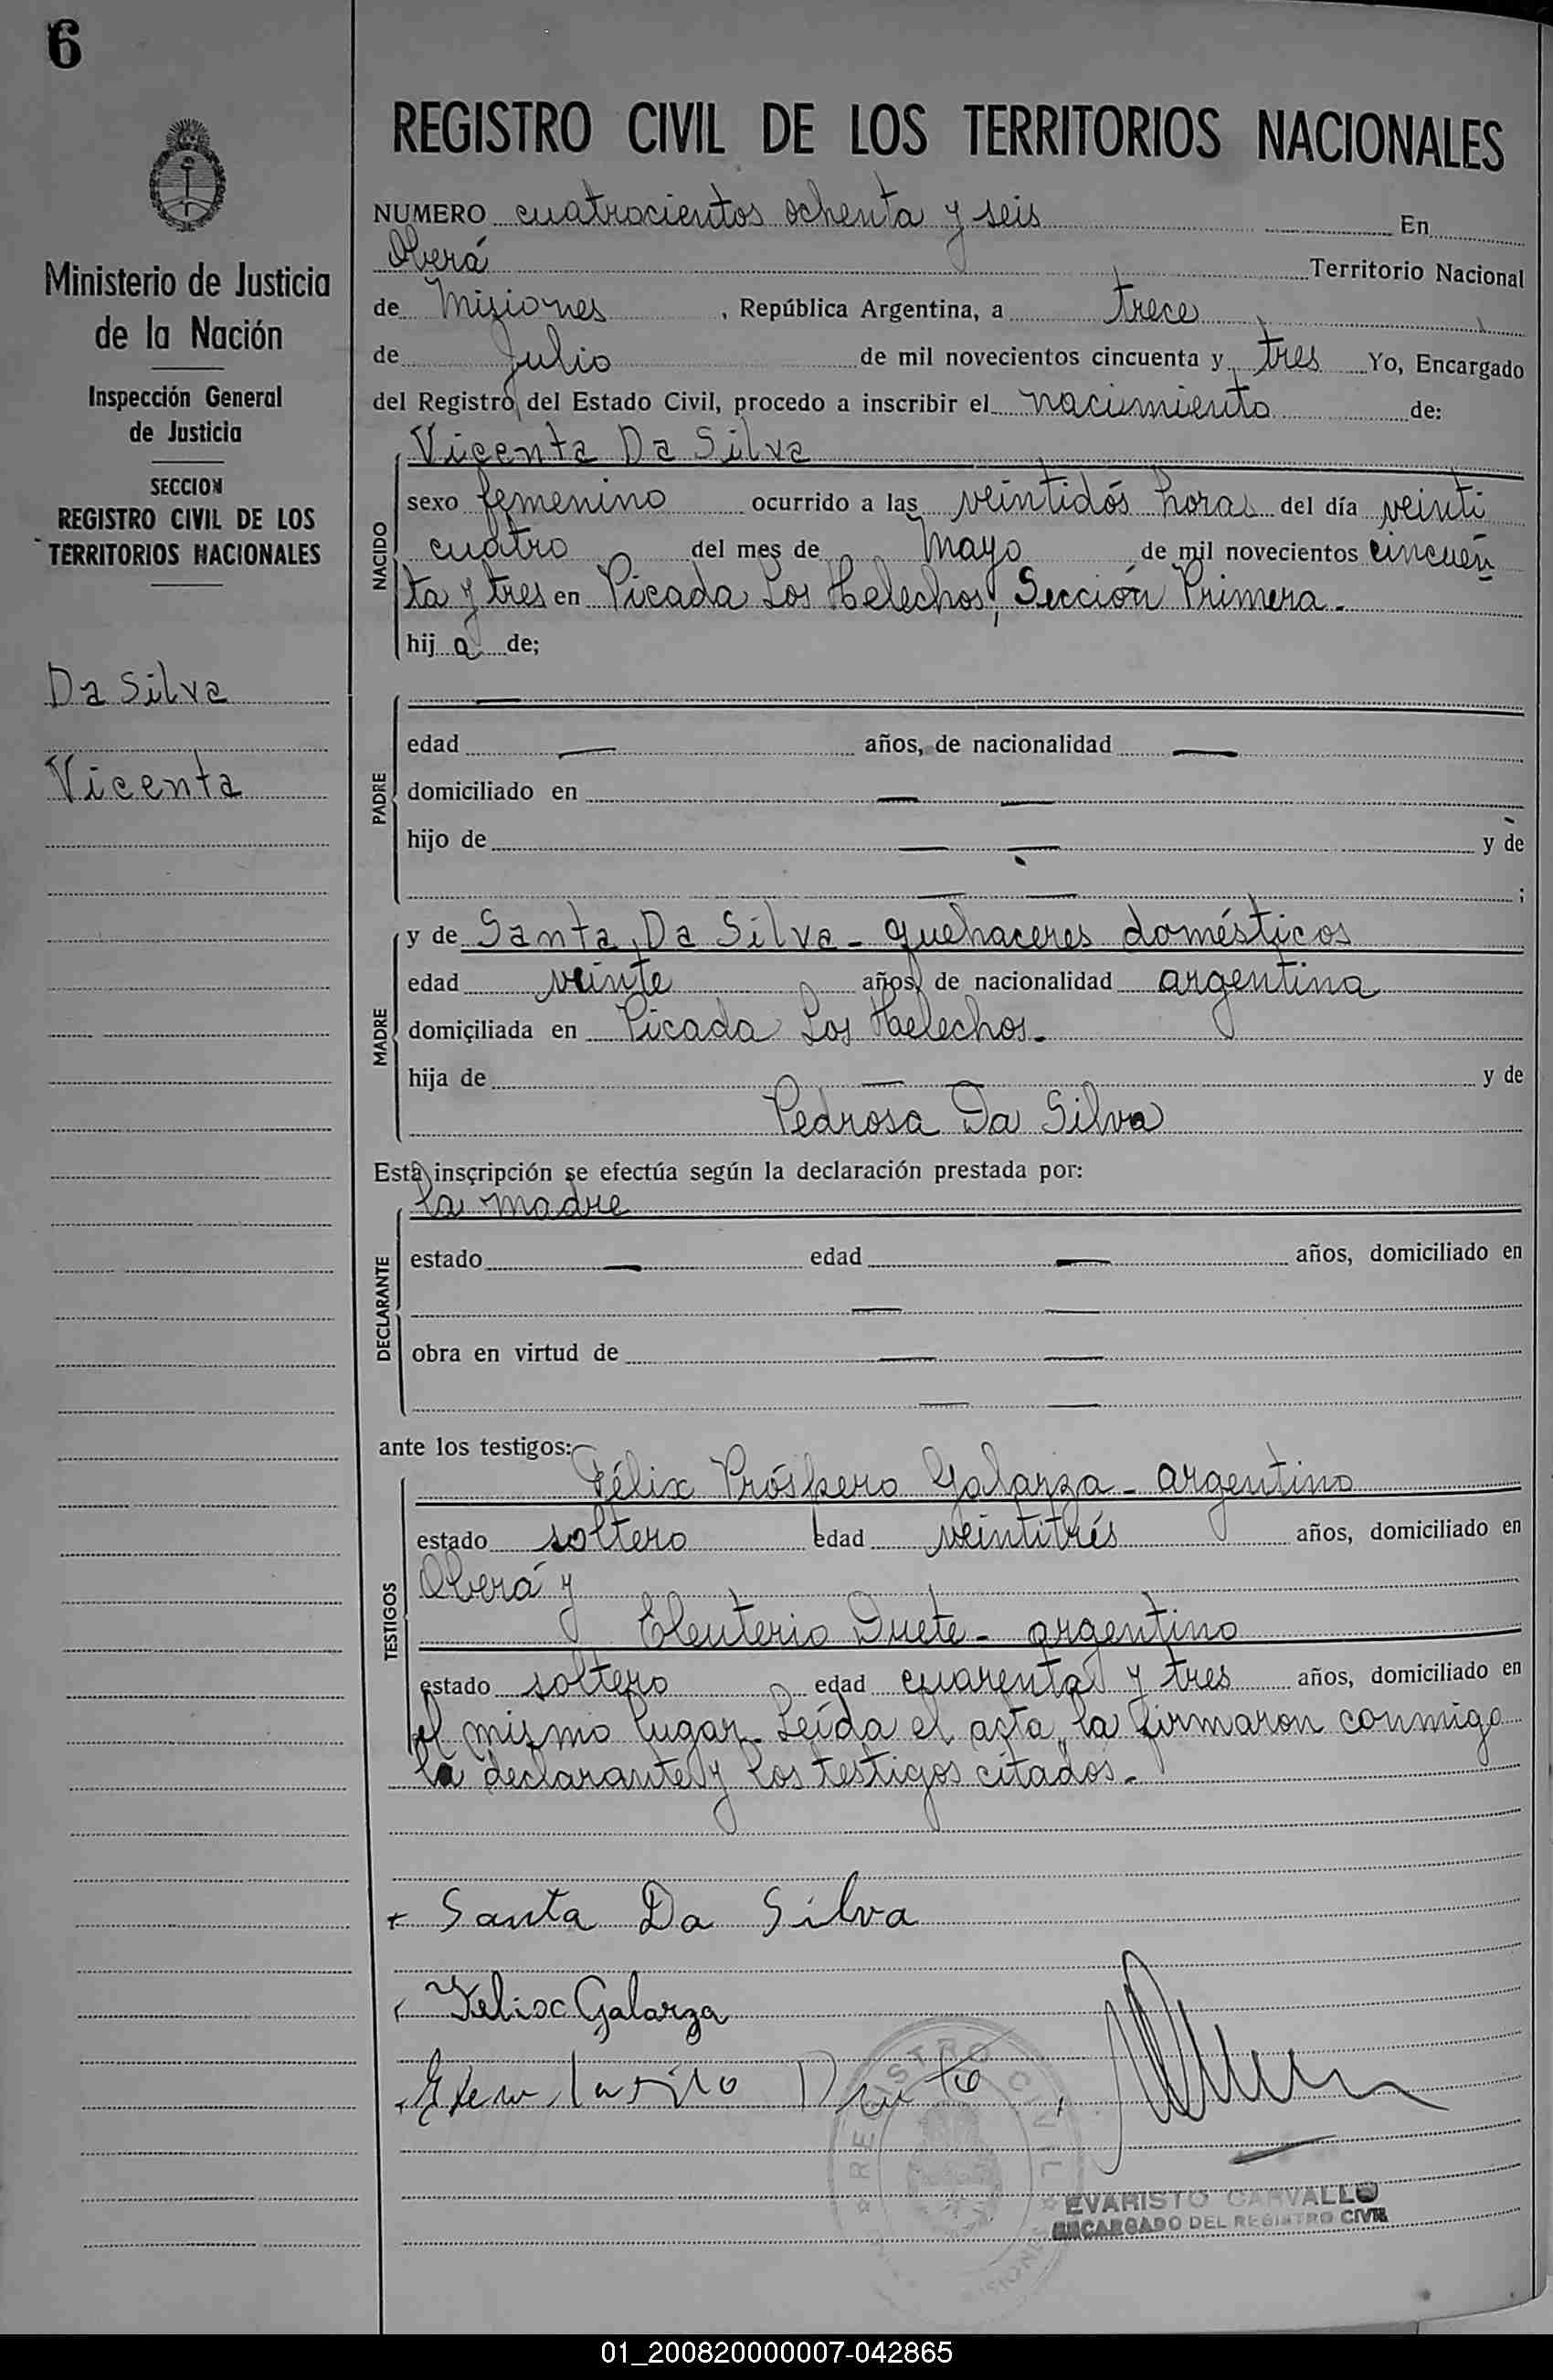 6
Ministerio de Justicia
de la Nación
Inspección General
de Justicia
SECCION
REGISTRO CIVIL DE LOS
TERRITORIOS NACIONALES
Da Silva
Vicenta
REGISTRO CIVIL DE LOS TERRITORIOS NACIONALES
NUMERO cuatrocientos ochenta y seis En
Oberá Territorio Nacional
de Misiones , República Argentina, a trece
de Julio de mil novecientos cincuenta y tres Yo, Encargado
del Registro del Estado Civil, procedo a inscribir el nacimiento de:
Vicenta Da Silva
NACIDO
sexo femenino ocurrido a las veintidós horas del día veinti
cuatro del mes de Mayo de mil novecientos cincuen
ta y tres en Picada Los Helechos, Sección Primera.
hij a de;
PADRE
edad — años, de nacionalidad —
domiciliado en — —
hijo de — — y de
— — ;
MADRE
y de Santa Da Silva - quehaceres domésticos
edad veinte años, de nacionalidad argentina
domiciliada en Picada Los Helechos.
hija de — — y de
Pedrosa Da Silva
Esta inscripción se efectúa según la declaración prestada por:
la madre
DECLARANTE
estado — edad — años, domiciliado en
— —
obra en virtud de — —
— —
ante los testigos:
TESTIGOS
Félix Próspero Galarza - argentino
estado soltero edad veintitrés años, domiciliado en
Oberá y
Eleuterio Duete - argentino
estado soltero edad cuarenta y tres años, domiciliado en
el mismo lugar. Leída el acta, la firmaron conmigo
la declarante y los testigos citados.
Santa Da Silva
Felix Galarza
REGISTRO CIVIL
EVARISTO CARVALLO
ENCARGADO DEL REGISTRO CIVIL
01_200820000007-042865